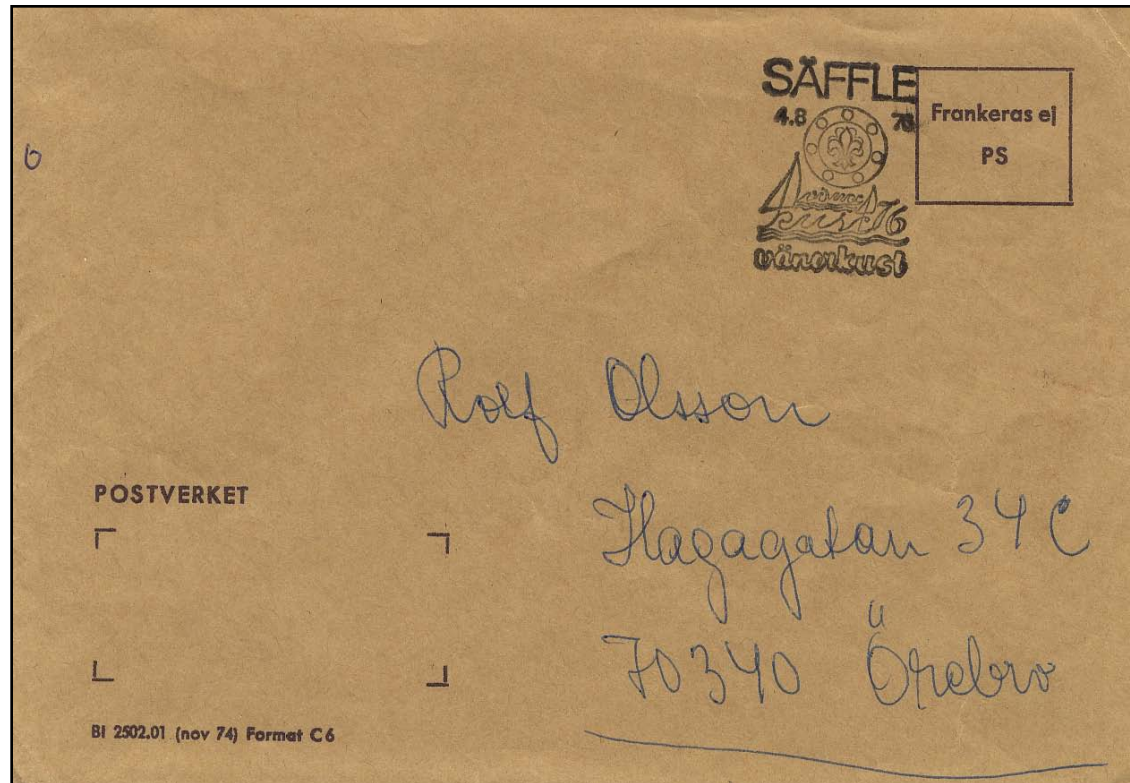 SÄFFLE
4.8 76
vänerkust 76
vänerkust
Frankeras ej
PS
6
Rolf Olsson
POSTVERKET
Hagagatan 34 C
70340 Örebro
BI 2502.01 (nov 74) Format C6